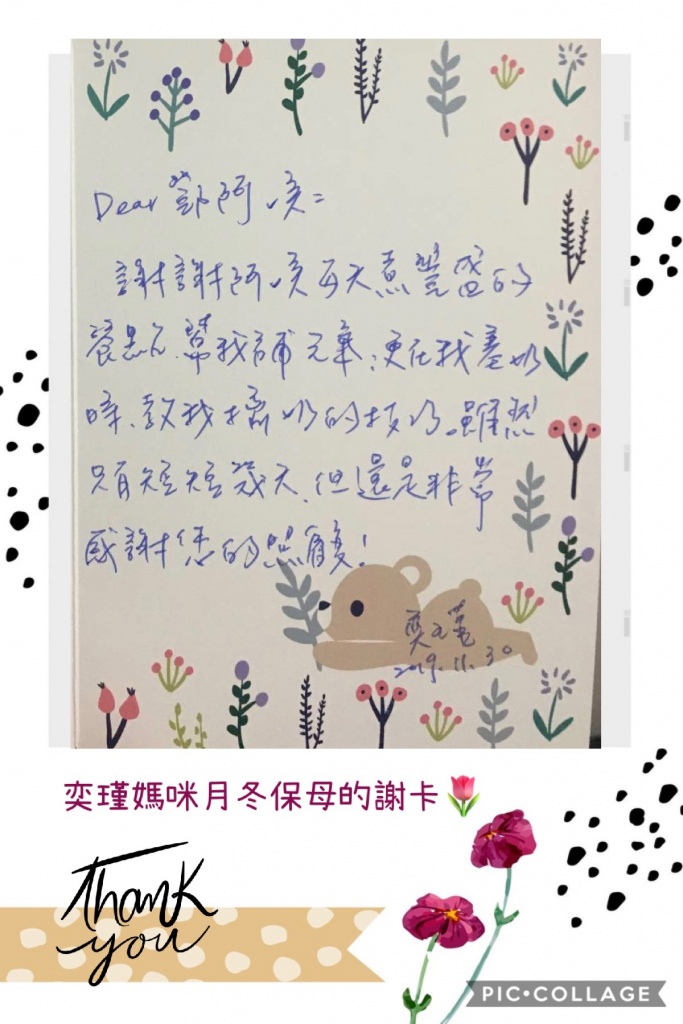 Dear 鄧阿姨:
謝謝阿姨每天煮豐盛的
餐點、幫我補元氣;更在我塞奶
時、教我擠奶的技巧。雖然
只有短短幾天、但還是非常
感謝您的照顧!
2019.11.30
奕瑾媽咪月冬保母的謝卡
Thank
you
PIC•COLLAGE